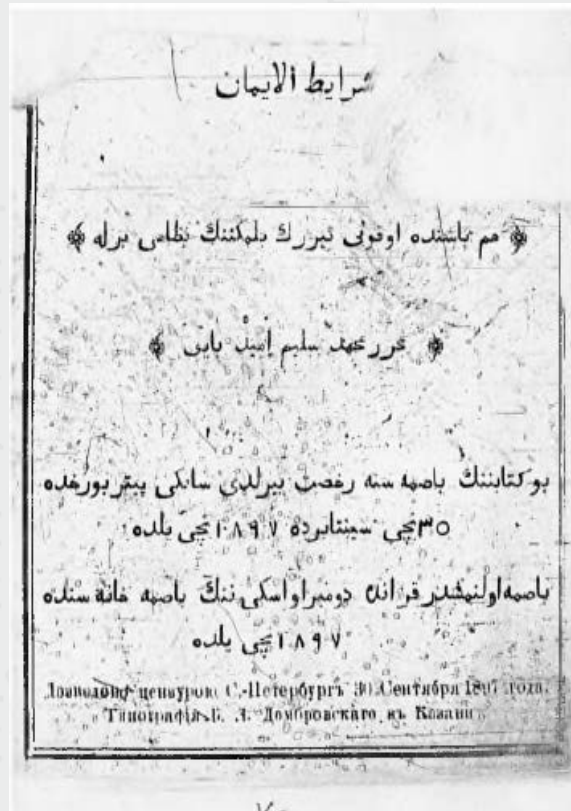 شرايط الايمان
هم باشنده اوقونى تيزرك بلمكننك نظامى برله
محرر محمد سليم اميد بايى
بو كتابننك باصمه سنه رخصت بيرلدى سانكى پيتربورغده
٣٥نچى سينتابرده ١٨٩٧نچى يلده
باصمه اولنمشدر قزانده دومبراواسكى ننك باصمه خانه سنده
١٨٩٧نچى يلده
Дозволено цензурою С.-Петербургъ 30 Сентября 1897 года.
Типографія Б. Л. Домбровскаго въ Казани.